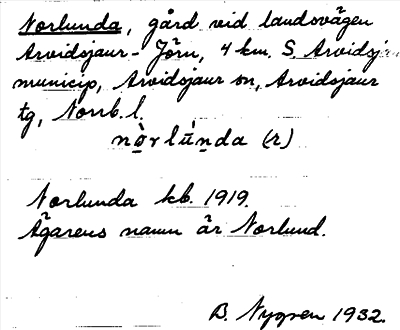 Norlunda, gård vid landsvägen
Arvidsjaur - Jörn, 4 km. S. Arvidsj.
municip, Arvidsjaur sn, Arvidsjaur
tg, Norrb. l.
nòrlúnda (r)
Norlunda kb. 1919.
Ägarens namn är Norlund.
B. Nygren 1932.